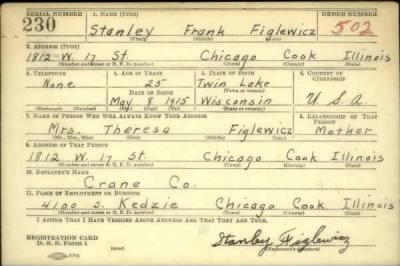 SERIAL NUMBER 1. NAME (Print) ORDER NUMBER
230 Stanley Frank Figlewicz 502
(First) (Middle) (Last)
2. ADDRESS (Print)
1812 W. 17 St. Chicago Cook Illinois
(Number and street or R. F. D. number) (Town) (County) (State)
3. TELEPHONE 4. AGE IN YEARS 5. PLACE OF BIRTH 6. COUNTRY OF CITIZENSHIP
None 25 Twin Lake
DATE OF BIRTH (Town or county)
May 8 1915 Wisconsin U.S.A.
(Exchange) (Number) (Mo.) (Day) (Yr.) (State or country)
7. NAME OF PERSON WHO WILL ALWAYS KNOW YOUR ADDRESS 8. RELATIONSHIP OF THAT PERSON
Mrs. Theresa Figlewicz Mother
(Mr., Mrs., Miss) (First) (Middle) (Last)
9. ADDRESS OF THAT PERSON
1812 W. 17 St. Chicago Cook Illinois
(Number and street or R. F. D. number) (Town) (County) (State)
10. EMPLOYER'S NAME
Crane Co.
11. PLACE OF EMPLOYMENT OR BUSINESS
4100 S. Kedzie Chicago Cook Illinois
(Number and street or R. F. D. number) (Town) (County) (State)
I AFFIRM THAT I HAVE VERIFIED ABOVE ANSWERS AND THAT THEY ARE TRUE.
REGISTRATION CARD
D. S. S. Form 1 (over) Stanley Figlewicz
(Registrant's signature)